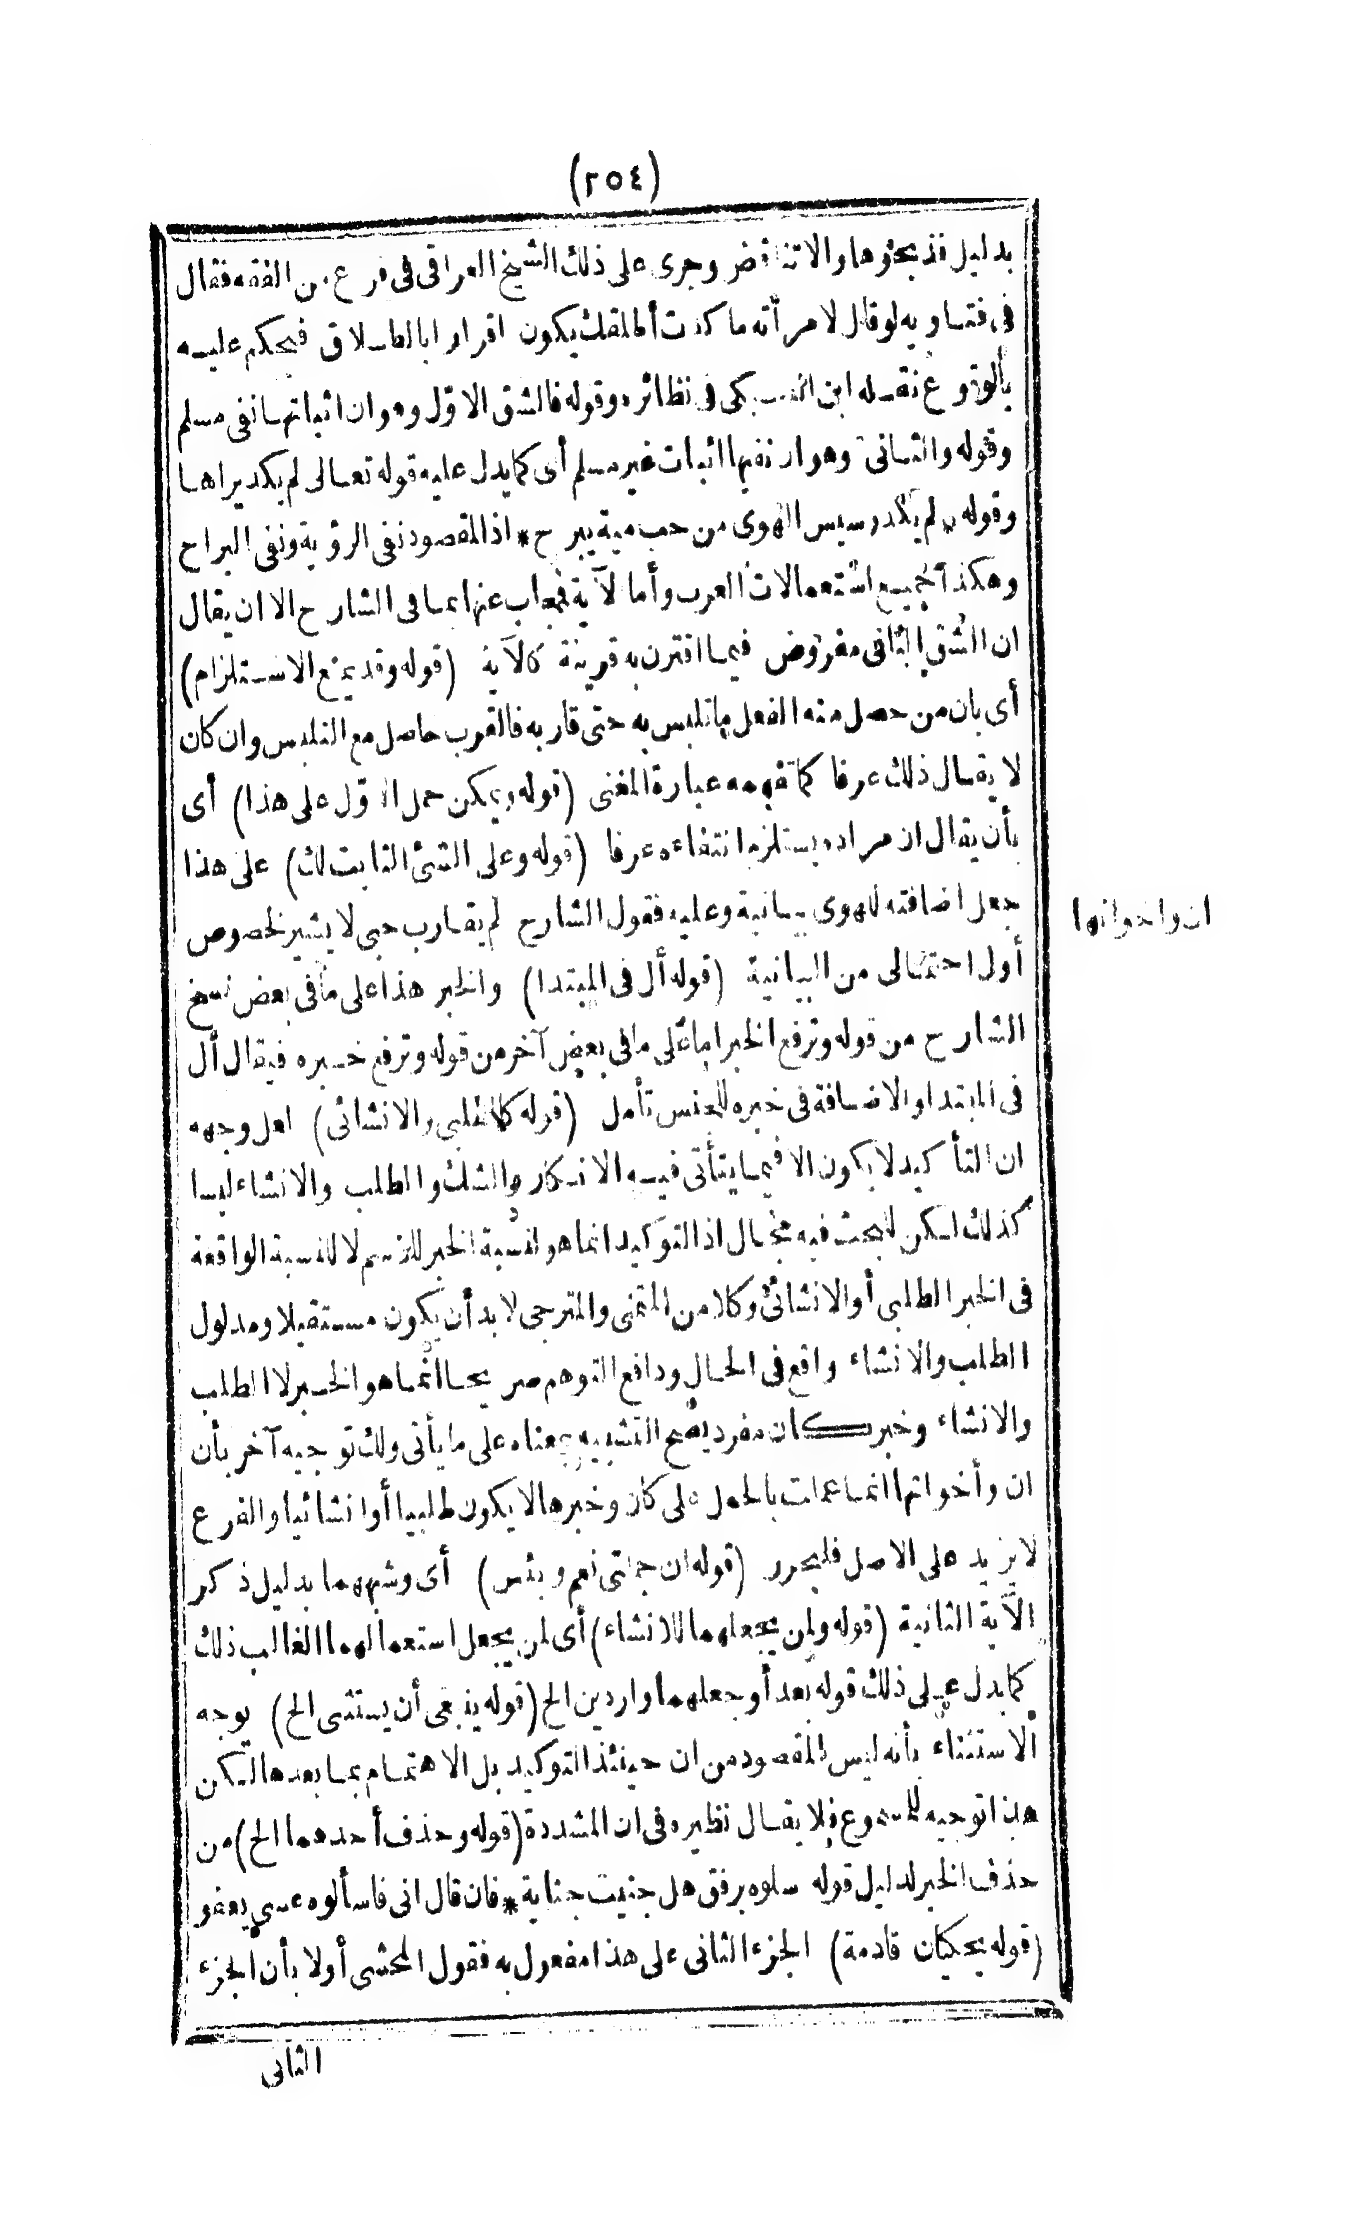 (٢٥٤)
بدليل فذبحوها والا تناقض وجرى على ذلك الشيخ العراقى فى فرع من الفقه فقال
فى فتاويه لو قال لامرأته ما كدت أطلقك يكون اقرارا بالطلاق فيحكم عليه
بالوقوع نقله ابن السبكى فى نظائره وقوله فالشق الاوّل وهو ان اثباتها نفى مسلم
وقوله والثانى وهو ان نفيها اثبات غير مسلم أى كما يدل عليه قوله تعالى لم يكد يراها
وقوله * لم يكد رسيس الهوى من حب مية يبرح * اذ المقصود نفى الرؤية ونفى البراح
وهكذا جميع استعمالات العرب وأما الآية فيجاب عنها بما فى الشارح الا ان يقال
ان الشق الثانى مفروض فيما اقترن به قرينة كالآية (قوله وقد يمنع الاستلزام)
أى بان من حصل منه الفعل ما تلبس به حتى قاربه فالقرب حاصل مع التلبس وان كان
لا يقال ذلك عرفا كما تفهمه عبارة المغنى (قوله ويمكن حمل الاوّل على هذا) أى
بأن يقال ان مراده يستلزم انتفاءه عرفا (قوله وعلى الشئ الثابت لك) على هذا
جعل اضافته للهوى بيانية وعليه فقول الشارح لم يقارب حبى لا يشير لخصوص
ان واخواتها
أول احتمالى من البيانية (قوله أل فى المبتدا) والخبر هذا على ما فى بعض نسخ
الشارح من قوله وترفع الخبر اما على ما فى بعض آخر من قوله وترفع خبره فيقال أل
فى المبتدا والاضافة فى خبره للجنس تأمل (قوله كالطلبى والانشائى) لعل وجهه
ان التأكيد لا يكون الا فيما يتأتى فيه الانكار والشك والطلب والانشاء ليسا
كذلك لكن للبحث فيه مجال اذ التوكيد انما هو لنسبة الخبر للاسم لا للنسبة الواقعة
فى الخبر الطلبى أو الانشائى وكلا من المتمنى والمترجى لا بد أن يكون مستقبلا ومدلول
الطلب والانشاء واقع فى الحال ودافع التوهم صريحا انما هو الخبر لا الطلب
والانشاء وخبر كان مفرد يصح التشبيه بمعناه على ما يأتى ولك توجيه آخر بأن
ان وأخواتها انما عملت بالحمل على كان وخبرها لا يكون طلبيا أو انشائيا والفرع
لا يزيد على الاصل فليحرر (قوله ان جملتى نعم وبئس) أى وشبههما بدليل ذكر
الآية الثانية (قوله ولمن يجعلهما للانشاء) أى لمن يجعل استعمالهما الغالب ذلك
كما يدل على ذلك قوله بعد أو جعلهما واردين الخ (قوله ينبغى أن يستثنى الخ) يوجه
الاستثناء بأنه ليس المقصود من ان حينئذ التوكيد بل الاهتمام بما بعدها لكن
هذا توجيه للمسموع فلا يقال نظيره فى ان المشددة (قوله وحذف أحدهما الخ) من
حذف الخبر لدليل قوله سلوه برفق هل جنيت جناية * فان قال انى فاسألوه عسى يعفو
(قوله يحكيان قادمة) الجزء الثانى على هذا مفعول به فقول المحشى أولا بأن الجزء
الثانى